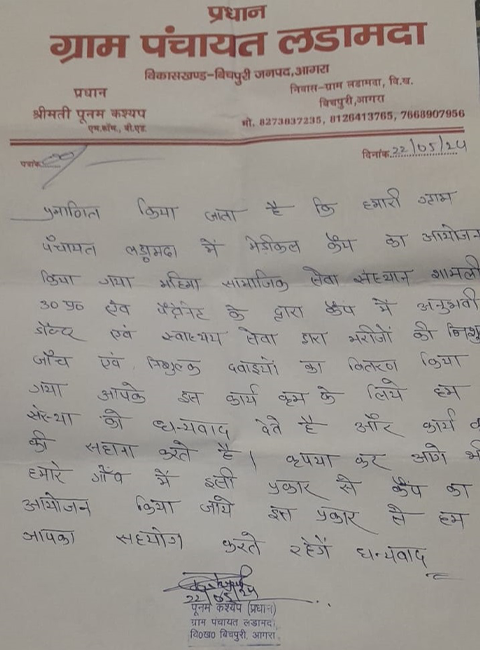 प्रधान
ग्राम पंचायत लडामदा
विकासखण्ड-बिचपुरी जनपद,आगरा
प्रधान
श्रीमती पूनम कश्यप
एम.कॉम., बी.एड.
निवास-ग्राम लडामदा, वि.ख.
बिचपुरी,आगरा
मो. 8273837235, 8126413765, 7668907956
पत्रांक
दिनांक 22/05/24
प्रमाणित किया जाता है कि हमारी ग्राम
पंचायत लड़ामदा में मेडीकल कैंप का आयोजन
किया गया महिमा सामाजिक सेवा संस्थान शामली
उ0 प्र0 एवं के द्वारा कैंप में अनुभवी
डॉक्टर एवं स्वास्थय सेवा द्वारा मरीजों की निशु
जाँच एवं निशुल्क दवाइयों का वितरण किया
गया आपके इस कार्य क्रम के लिये हम
संस्था को धन्यवाद देते है और कार्य क
की सहाना करते है। कृपया कर आगे भी
हमारे गाँव में इसी प्रकार से कैंप का
आयोजन किया जाये इस प्रकार से हम
आपका सहयोग करते रहेगें धन्यवाद
22/05/24
पूनम कश्यप (प्रधान)
ग्राम पंचायत लडामदा,
वि0ख0 बिचपुरी, आगरा.